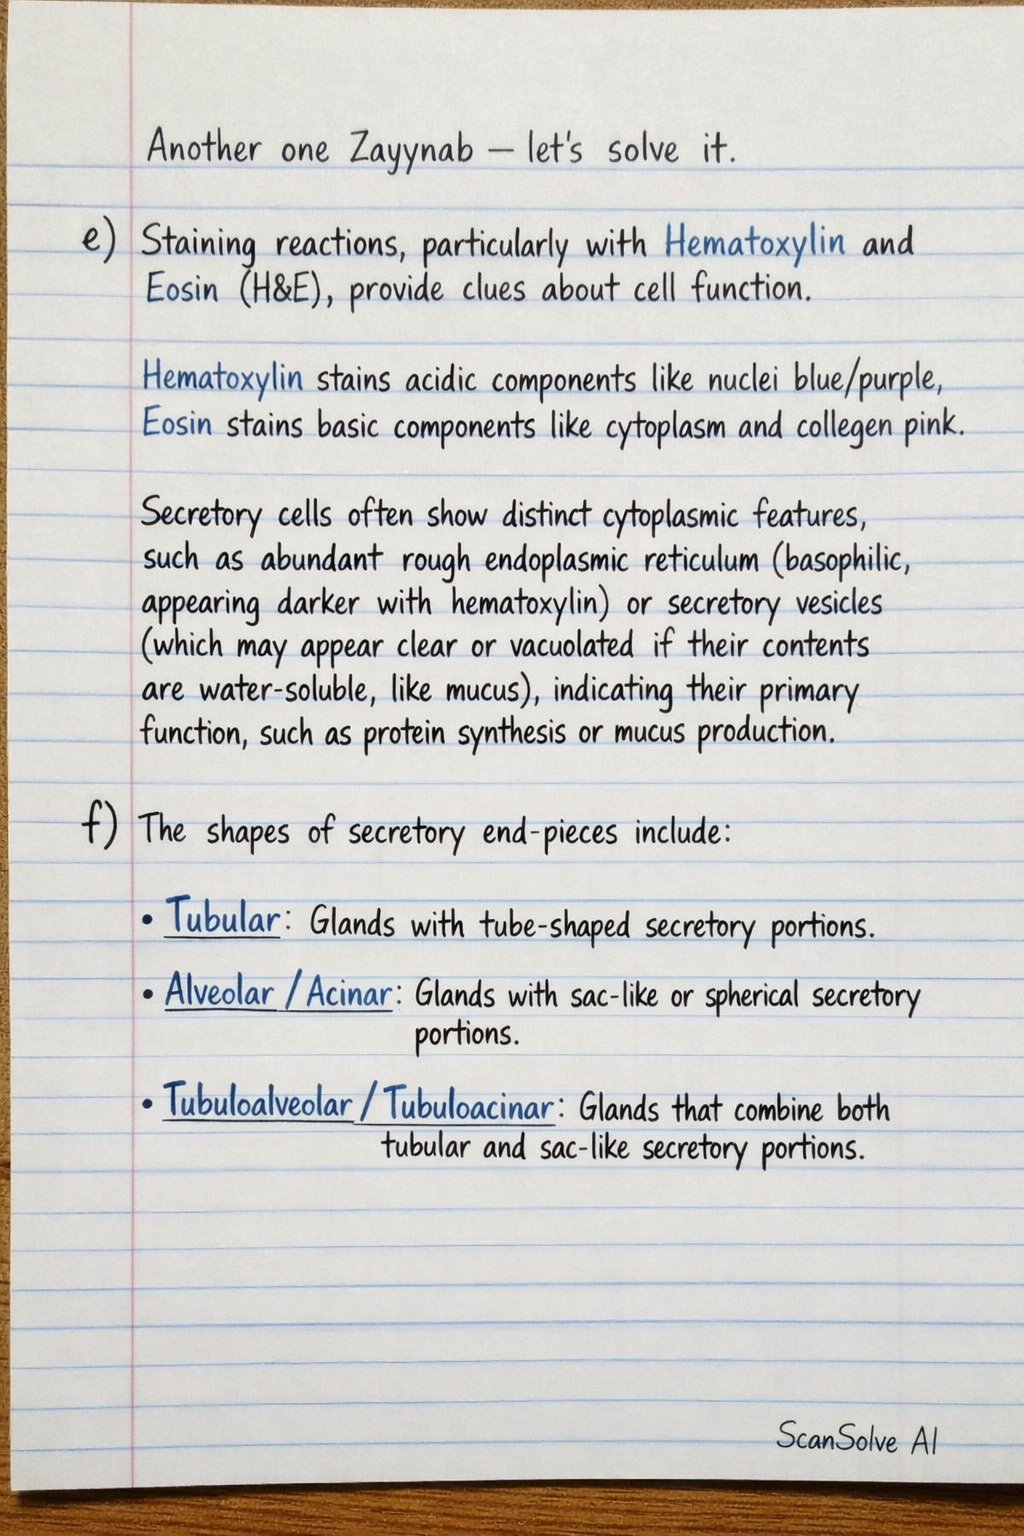 Another one Zayynab – let's solve it.
e) Staining reactions, particularly with Hematoxylin and
Eosin (H&E), provide clues about cell function.
Hematoxylin stains acidic components like nuclei blue/purple,
Eosin stains basic components like cytoplasm and collegen pink.
Secretory cells often show distinct cytoplasmic features,
such as abundant rough endoplasmic reticulum (basophilic,
appearing darker with hematoxylin) or secretory vesicles
(which may appear clear or vacuolated if their contents
are water-soluble, like mucus), indicating their primary
function, such as protein synthesis or mucus production.
f) The shapes of secretory end-pieces include:
• Tubular: Glands with tube-shaped secretory portions.
• Alveolar / Acinar: Glands with sac-like or spherical secretory
portions.
• Tubuloalveolar / Tubuloacinar: Glands that combine both
tubular and sac-like secretory portions.
ScanSolve AI